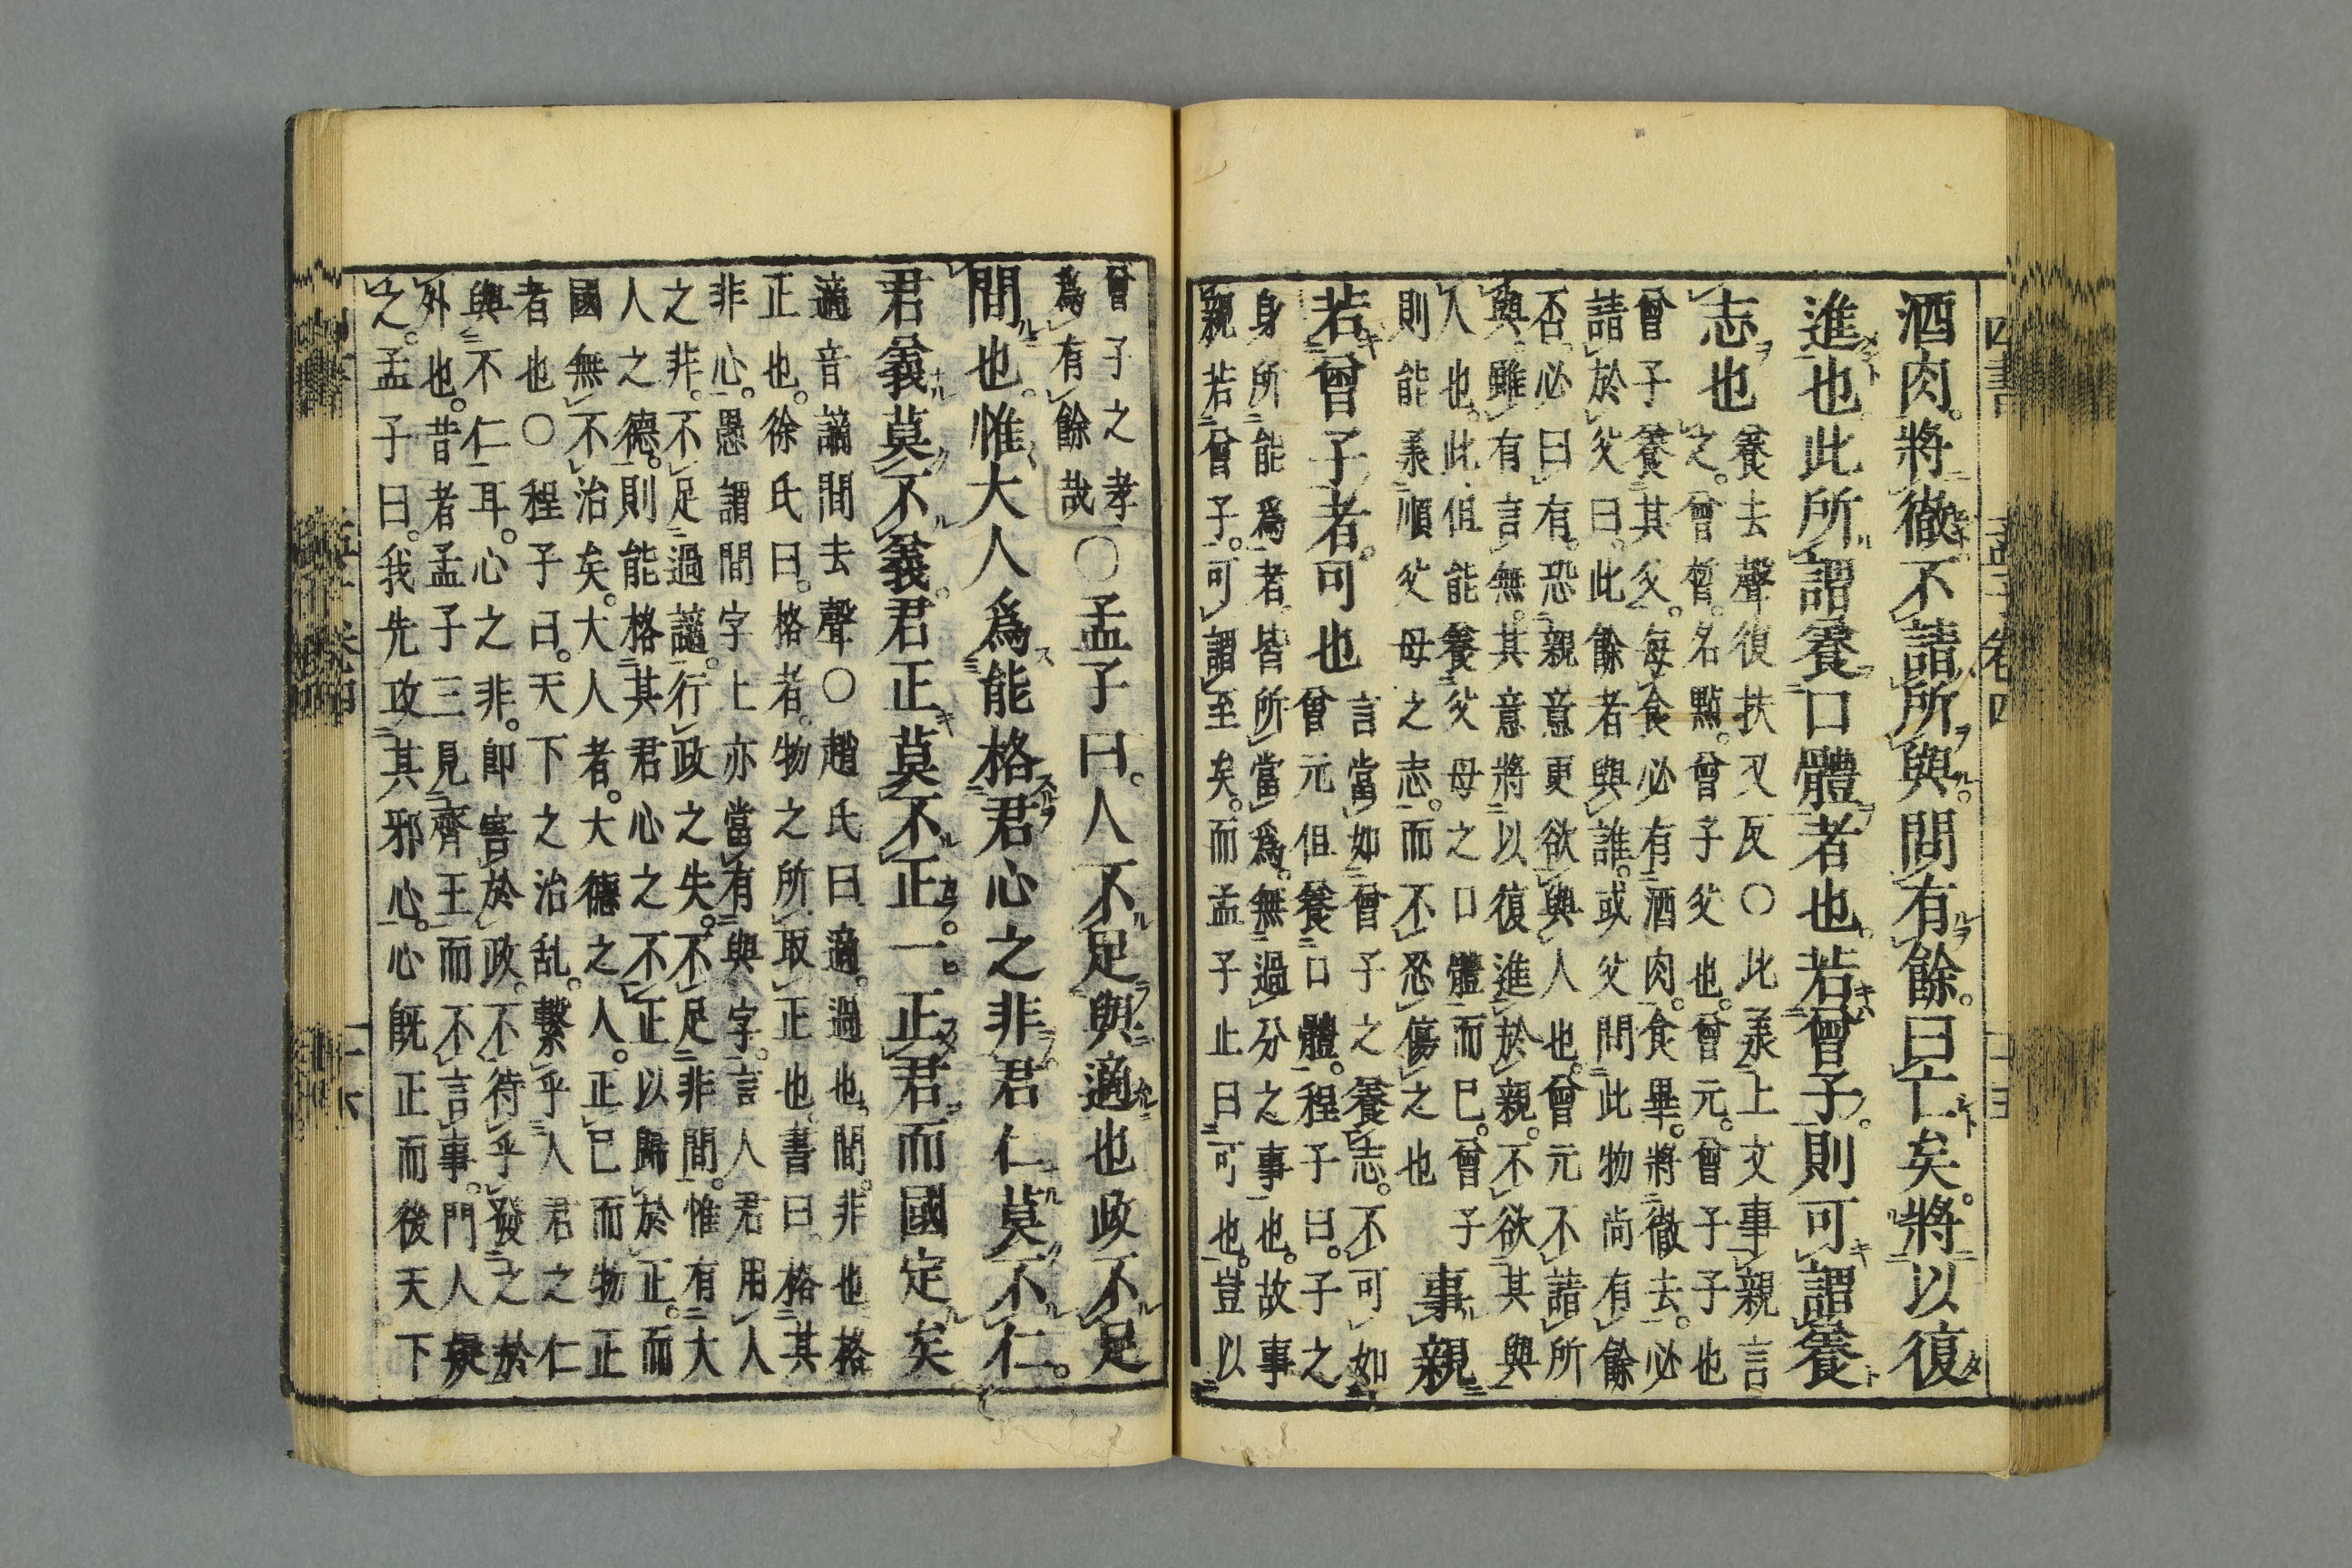 酒肉。將徹不請所與。問有餘。曰亡矣。將以復
進也此所謂養口體者也。若曾子則可謂養
志也養去聲復扶又反○此承上文事親言
之。曾晳。名點。曾子父也。曾元。曾子子也
曾子養其父。每食必有酒肉。食畢。將徹去。必
請於父曰。此餘者與誰。或父問此物尚有餘
否。必曰有。恐親意更欲與人也。曾元不請所
與。雖有言無。其意將以復進於親。不欲其與
人也。此但能養父母之口體而已。曾子
則能承順父母之志。而不忍傷之也事親
若曾子者。可也言當如曾子之養志。不可如
曾元但養口體。程子曰。子之
身所能爲者。皆所當爲。無過分之事也。故事
親若曾子。可謂至矣。而孟子止曰可也。豈以
曾子之孝
爲有餘哉○孟子曰。人不足與適也政不足
間也。惟大人爲能格君心之非君仁莫不仁。
君義莫不義。君正莫不正。一正君而國定矣
適音讁間去聲○趙氏曰適。過也。間。非也格
正也。徐氏曰。格者。物之所取正也。書曰。格其
非心。愚謂間字上亦當有與字。言人君用人
之非。不足過讁。行政之失。不足非間。惟有大
人之德。則能格其君心之不正以歸於正。而
國無不治矣。大人者。大德之人。正己而物正
者也○程子曰。天下之治乱。繫乎人君之仁
與不仁耳。心之非。即害於政。不待乎發之於
外也。昔者孟子三見齊王而不言事。門人疑
之。孟子曰。我先攻其邪心。心既正而後天下